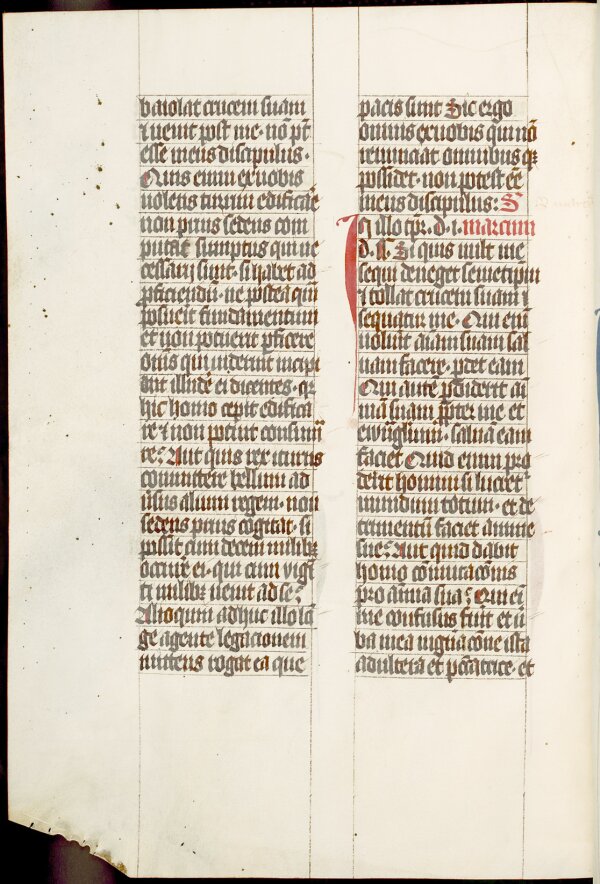 baiolat crucem suam
⁊ uenit post me· nō pt̄
esse meus discipulus·
Quis enim ex uobis
uolens turrim edificāe
non prius sedens com
putat sumptus qui ne
cessarii sunt· si habet ad
ꝑficiendū· ne postea qͣm
posueit fundamentum
et non potuerit ꝑficere
om̄s qui uiderint incipi
ant illude ei dicentes· qꝛ
hic homo cepit edifica
re ⁊ non potuit consum̄a
re? Aut quis rex iturus
committere bellum ad
ūsus alium regem· non
sedens prius cogitat· si
possit cum decem milibꝫ
occurre ei· qui cum vigī
ti milibꝫ uenit ad se?
Alioquin adhuc illo lō
ge agente legacionem
mittens rogat ea que
pacis sunt Sic ergo
omnis ex uobis qui nō
renunciat omnibus q̄
possidet· non potest eē
meus discipulus: S
In illo tp̄r. d. i. marcum
d. s. Si quis uult me
sequi deneget semetip̄m
⁊ tollat crucem suam ⁊
sequatur me· Qui eni
uoluit aīam suam sal
uam facere· ꝑdet eam
Qui autē ꝑdiderit ai
mā suam ꝓpter me et
ewāgliū· saluā eam
faciet Quid enim pro
derit homini si lucret᷑
mundum totum· et de
trimentū faciet anime
sue? Aut quid dabit
homo cōmutacōnis
pro anima sua? Qui ei
me confusus fuit et ū
ba mea in gn̄acōne ista
adultera et pctātrice· et